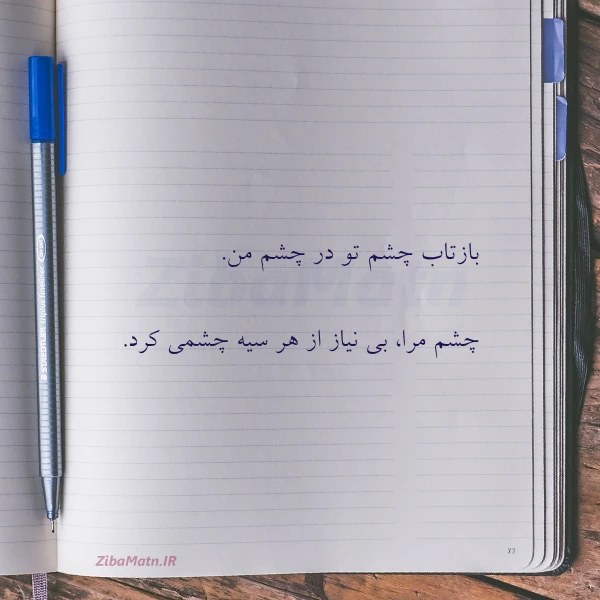 بازتاب چشم تو در چشم من.
چشم مرا، بی نیاز از هر سیه چشمی کرد.
ZibaMatn.IR
77